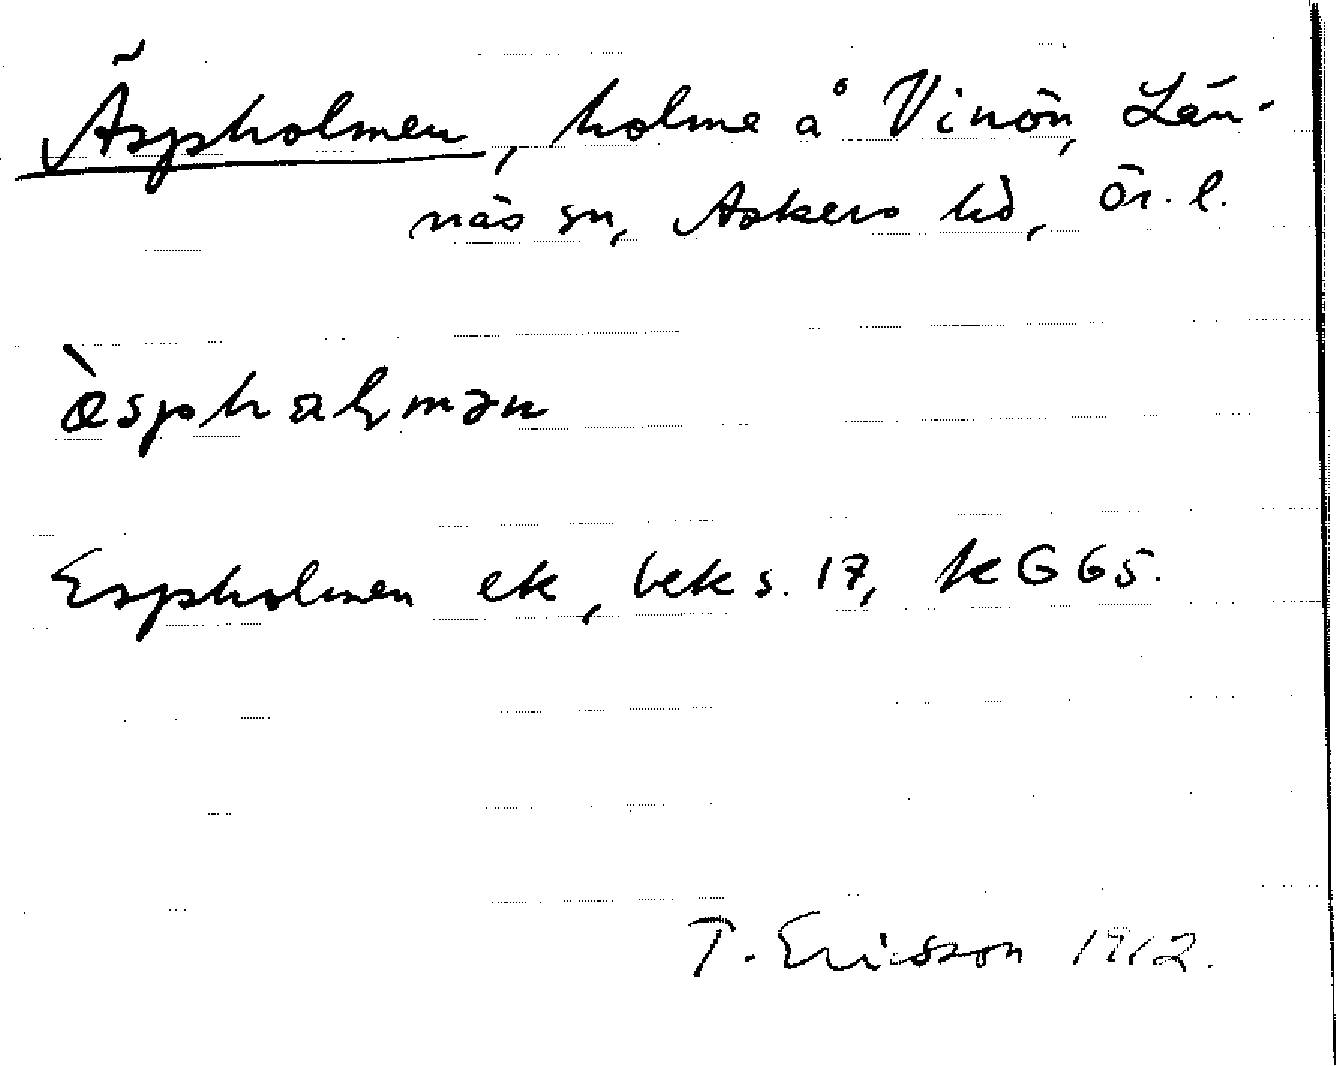 Äspholmen, holme å Vinön, Län-
näs sn, Askers hd, Ör. l.
æ̀sphalmən
Espholmen ek, bek s. 17, kG 65.
T. Ericsson 1912.